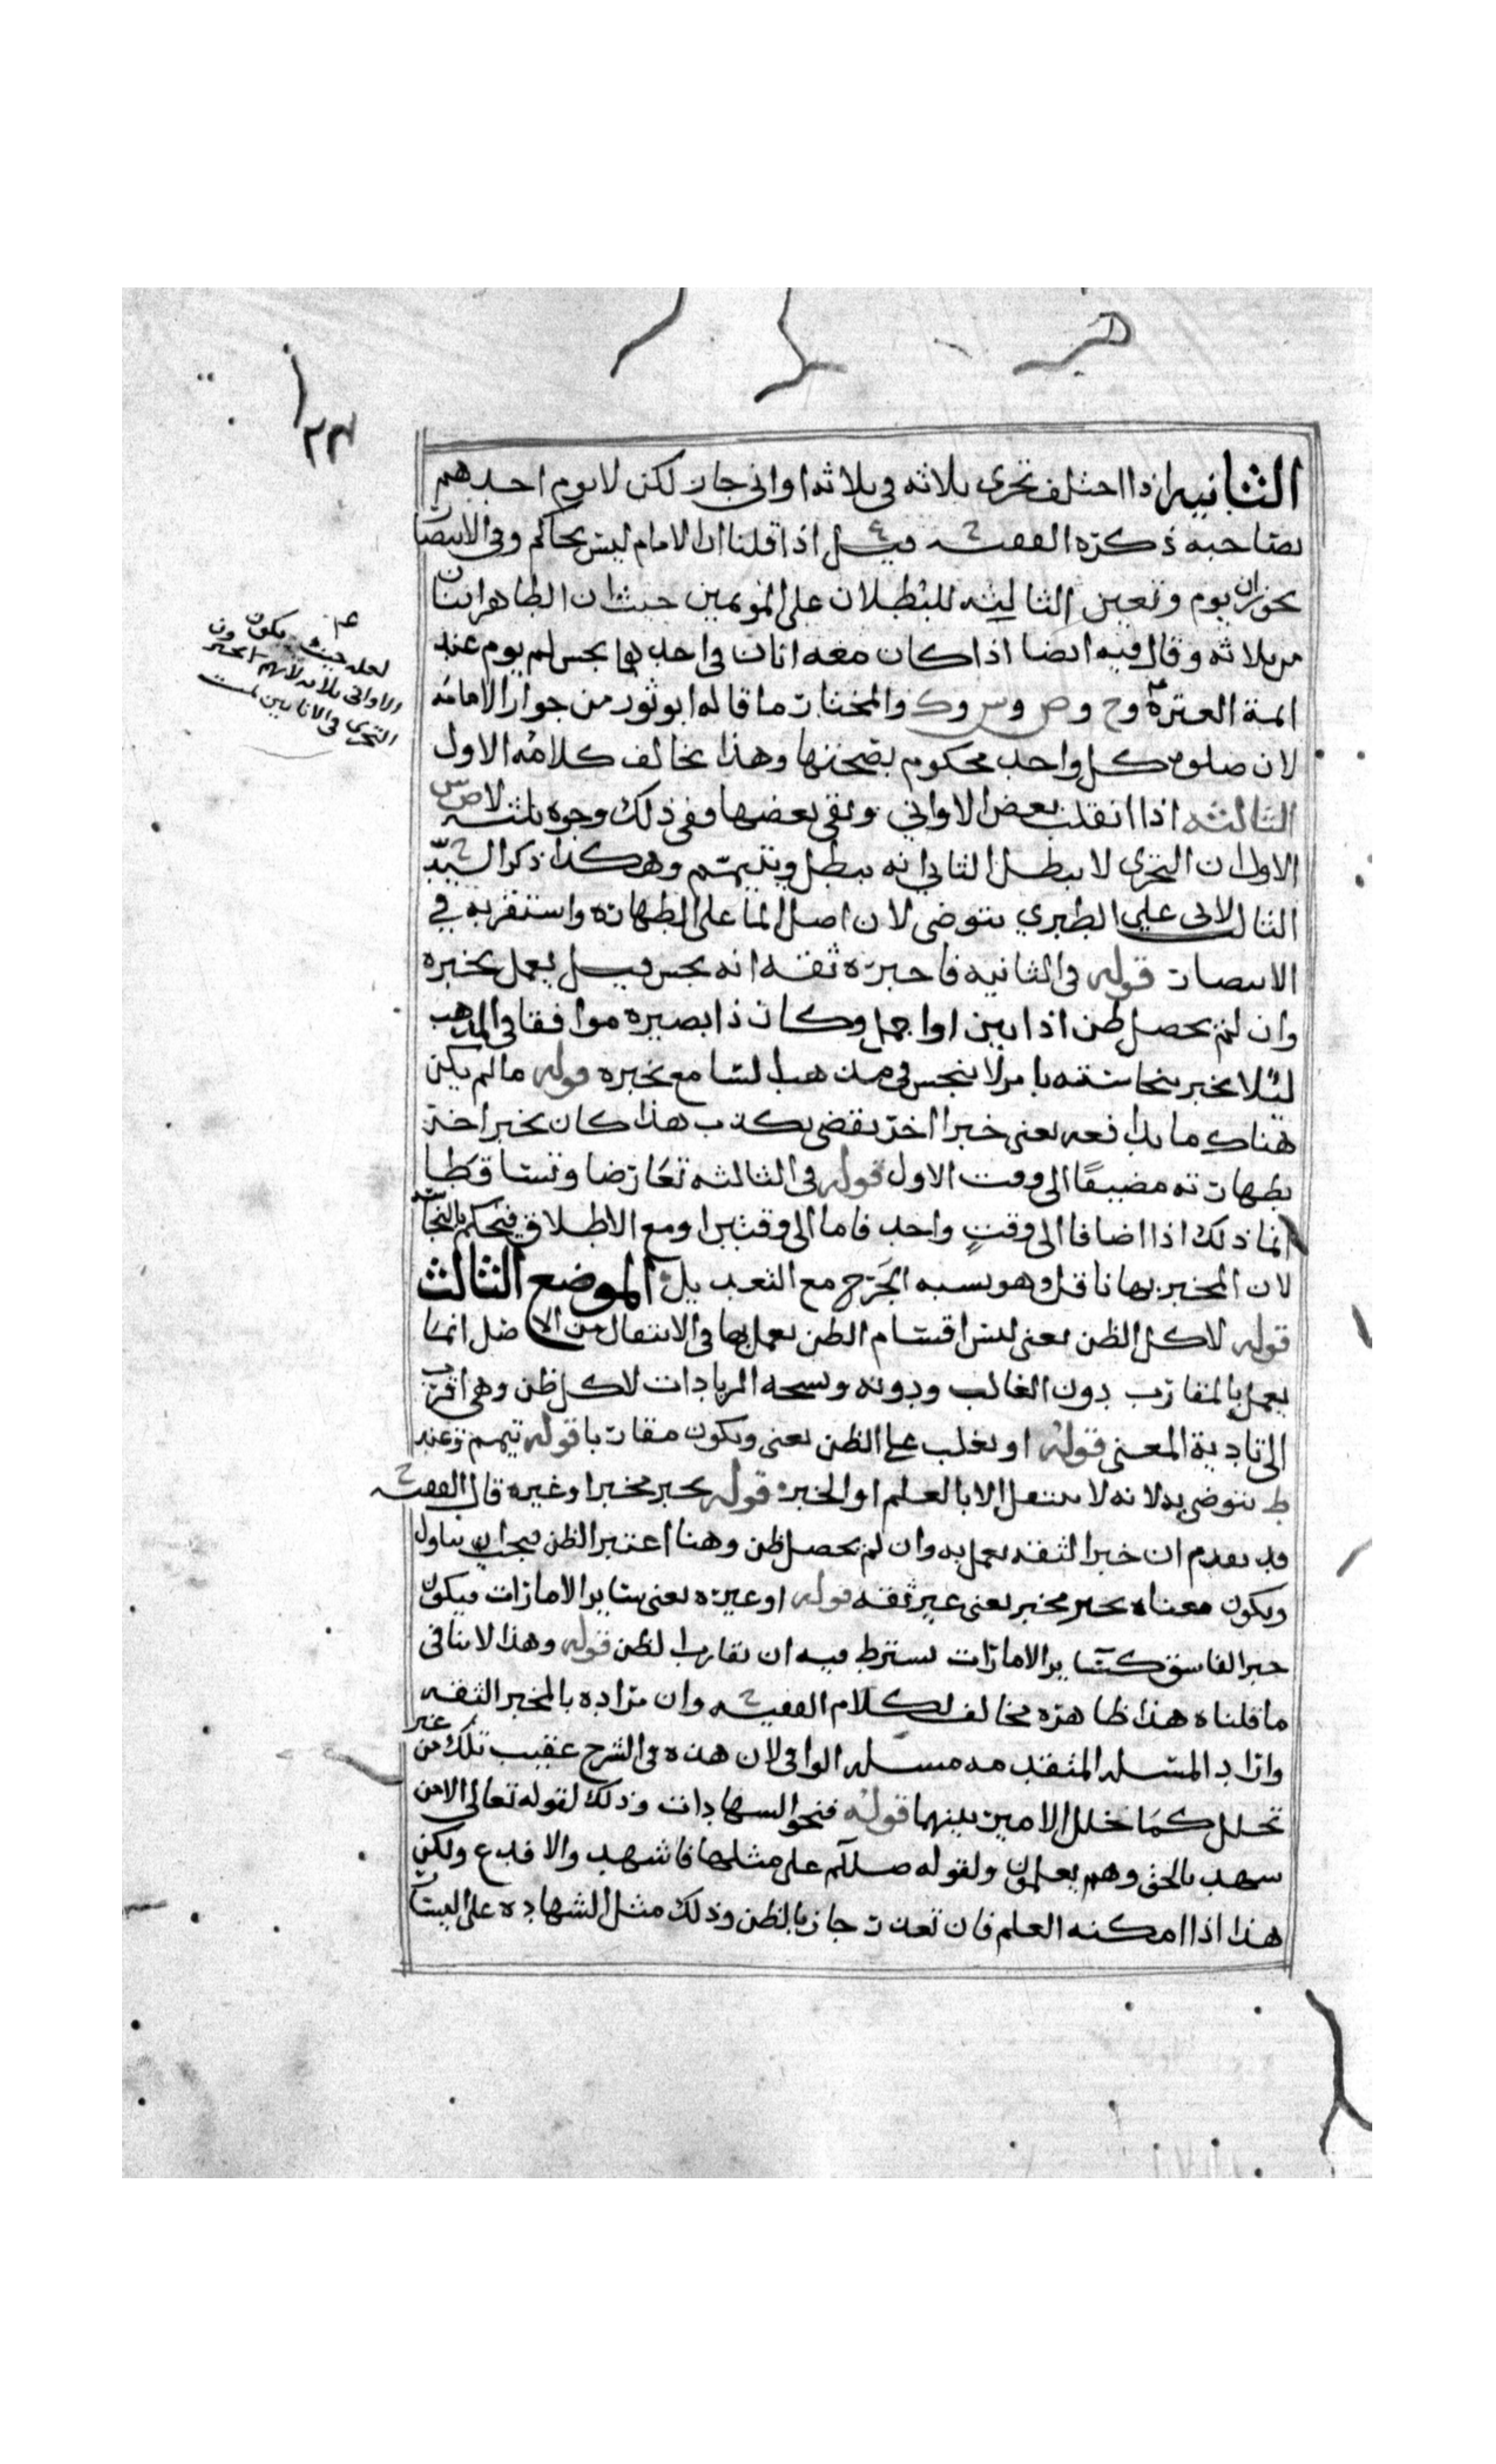 ٢٢
الثانيه اذا اختلف تحرى ثلاثه فى ثلاثه اوانى جاز لكن لا يوم احدهم
بصاحبه ذكره الفقيه قيل اذا قلنا ان الامام ليس بحاكم وفى الانتصار
يجوز ان يوم وتعين الثالثه للبطلان على المؤتمين حيث ان الطاهر اثنان
من ثلاثه وقال فيه ايضا اذا كان معه اناان واحدهما نجس لم يوم عند
ايمة العتره وح وص وش وك والمختار ما قاله ابو ثور من جواز الامامه
لان صلوة كل واحد محكوم بصحتها وهذا يخالف كلامه الاول
الثالثه اذا انقلب بعض الاواني وبقى بعضها ففى ذلك وجوه ثلثه لاص ش
الاول ان التحرى لا يبطل الثاني انه يبطل ويتيمم وهكذا ذكر السيد
الثالث لابى علي الطبري يتوضى لان اصل الماء على الطهاره واستقربه في
الانتصار قوله فى الثانيه فاخبره ثقه انه نجس قيل يعمل بخبره
وان لم يحصل ظن اذا بين او اجمل وكان ذا بصيره موافقا فى المذهب
ليلا يخبر بنجاسته بامر لا ينجس فى مذهب السامع بخبره قوله ما لم يكن
هناك ما يدافعه يعنى خبرا اخر يقضى بكذب هذا كان يخبر اخر
بطهارته مضيفًا الى وقت الاول قوله فى الثالثه تعارضا وتساقطا
انما ذلك اذا اضافا الى وقتٍ واحد فاما الى وقتين او مع الاطلاق فيحكم بالنجاسه
لان المخبر بها ناقل وهو يشبه الجرح مع التعديل الموضع الثالث
قوله لا كل الظن يعنى ليس اقسام الظن يعمل بها فى الانتقال من الاصل انما
يعمل بالمقارب دون الغالب ودونه ونسخه الزيادات لا كل ظن وهى اقرب
الى تادية المعنى قوله او يغلب على الظن يعنى ويكون مقاربا قوله تيمم وعند
ط يتوضى به لانه لا ينتقل الا بالعلم او الخبر قوله بخبر مخبر او غيره قال الفقيه
قد تقدم ان خبر الثقه يعمل به وان لم يحصل ظن وهنا اعتبر الظن فيجب ان يتاول
ويكون معناه بخبر مخبر يعنى غير ثقه قوله او غيره يعنى ساير الامارات فيكون
خبر الفاسق كساير الامارات يشترط فيه ان يقارب الظن قوله وهذا لا ينافى
ما قلناه هذا ظاهره مخالف لكلام الفقيه وان مراده بالمخبر الثقه
واراد المسله المتقدمه مسله الوافى لان هذه فى الشرح عقيب تلك من غير
تخلل كما تخلل الامير بينهما قوله فنحو الشهادات وذلك لقوله تعالى الا من
شهد بالحق وهم يعلمون ولقوله صللم على مثلها فاشهد والا فدع ولكن
هذا اذا امكنه العلم فان تعذر جاز بالظن وذلك مثل الشهاده على اليسار
لعله حيث يكون
الاوانى ثلاثه لانهم
التحرى فى الاناين